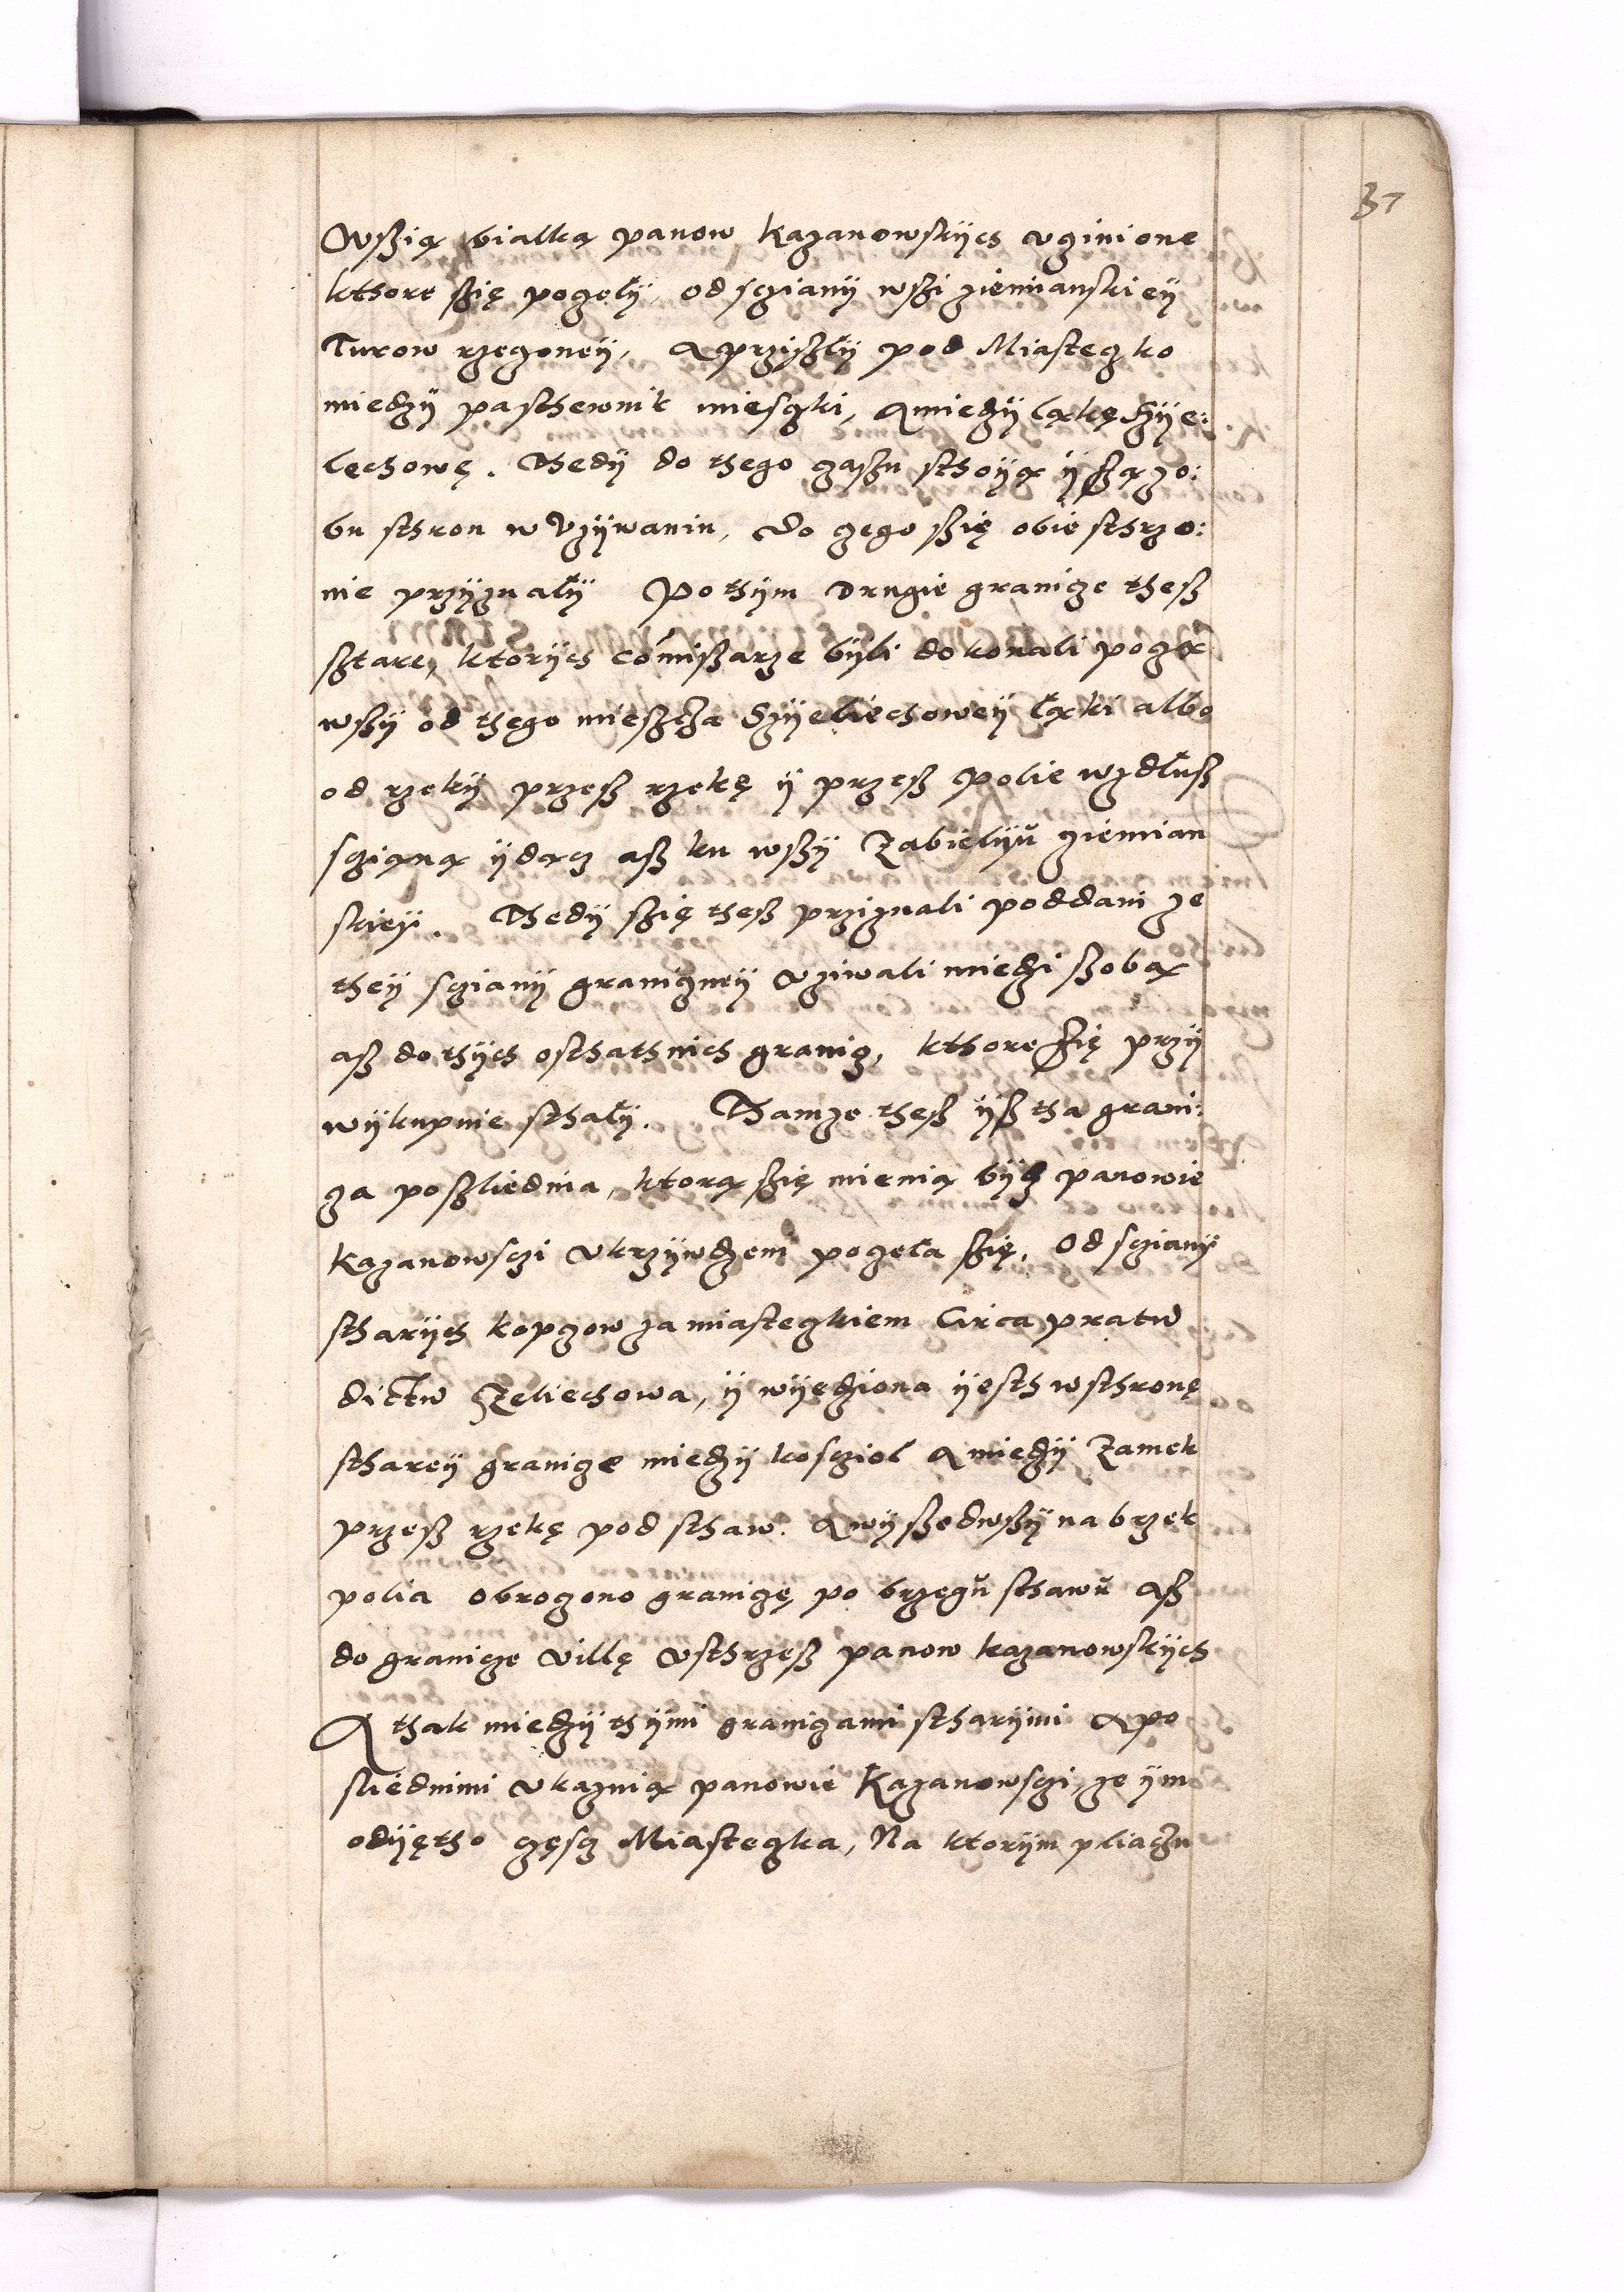 37
Wszią białką panow kazanowskÿch vczinione
kthore szię poczęłÿ, od scianÿ wszi ziemianskieÿ
Turow rzeczoneÿ, A prziszłÿ pod Miasteczko
miedzÿ pasthewnik miesczki, A miedzÿ łąkę Szÿe:
lechowę. Thedÿ do thego czaszu sthoÿą ÿ szą zo:
bu sthron w Vzÿwaniu, do czego szię obie sthrzo:
nie przÿznałÿ Pothÿm drugie granicze thesz
sztare, ktorÿch comiszarze bÿli dokonali począ
wszÿ od thego miesztcza Szÿeliechoweÿ łąki albo
od rzekÿ przesz rzekę ÿ przesz polie wzdłusz
scianą ÿdącz asz ku wszÿ Zabielÿu ziemian
skieÿ. Thedÿ szię thesz prziznali poddani ze
theÿ scianÿ graniczneÿ vziwali miedzi szobą
asz do thÿch osthathnich granicz, kthore szię przÿ
wÿkupnie sthałÿ. Thamze thesz ÿsz tha grani:
cza poszliednia, ktorą szię mienią bÿcz panowie
kazanowsczi vkrzÿwdzeni poczęła szię, od scianÿ
stharÿch kopczow za miasteczkiem Circa pratu
dictu Szeliechowa, ÿ wÿedziona ÿesth w sthronę
stareÿ granicze miedzÿ kosczioł A miedzÿ Zamek
przesz rzekę pod sthaw. A wÿszedwszÿ na brzek
polia obroczono granicę po brzegu sthawu asz
do granicze villę vsthrzesz panow kazanowskÿch
A thak miedzÿ thÿmi granicami stharÿmi A po
sliednimi vkaznią panowie Kazanowsczi ze ÿm
odÿętho częscz Miasteczka, Na ktorÿm pliaczu